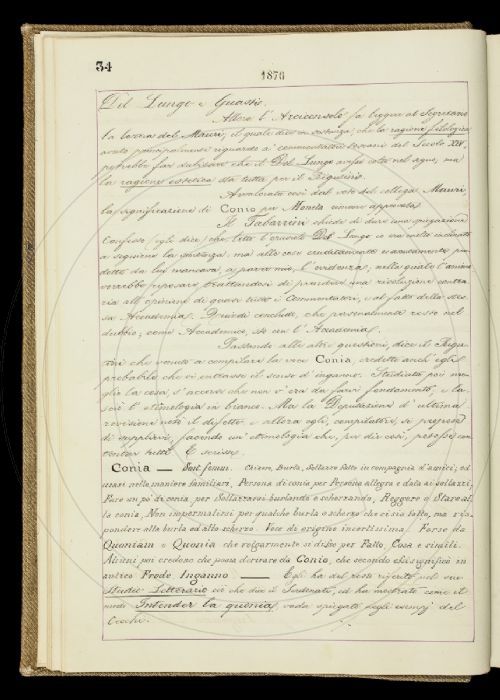 34
1876
Del Lungo e Guasti.
Allora l'Arciconsolo fa leggere al Segretario
la lettera del Mauri, il quale dice in sostanza, che la ragione filologica
avuto principalmente riguardo ai commentatori toscani del Secolo XIV,
potrebbe far dubitare che il Del Lungo avesse côlto nel segno, ma
la ragione estetica sta tutta per il Bigutin.
Avvalorata così dal voto del collega Mauri,
la significazione di Conio per Moneta rimane approvata.
Il Tabarrini chiede di dare una spiegazione.
Confessa (egli dice) che letti l'erudito Del Lungo, era molto inclinato
a seguirne la sentenza; ma alle cose eruditamente e
dette da lui mancava, a parer mio, l'evidenza, nella quale l'animo
vorrebbe riposare trattandosi di prendere una risoluzione contra-
ria all'opinione di quasi tutti i Commentatori, ed al fatto della stes-
sa Accademia. Quindi conclude, che personalmente resto nel
dubbio; come Accademico, sto con l'Accademia.
Passando alle altre questioni, dice il Rigu-
tini che venuto a compilare la voce Conia, credette anch'egli
probabile che vi entrasse il senso d'inganno. Studiata poi me-
glio la cosa, s'accorse che non v'era da farvi fondamento, e la-
sciò l'etimologia in bianco. Ma la Deputazione d'ultima
revisione notò il difetto, e allora egli, compilatore, si propose
di supplirvi, facendo un'etimologia che, per dir così, potesse con-
tentar tutti. E scrisse:
Conia — Sost. femm. Chiasso, Burla, Sollazzo fatto in compagnia d'amici; ed
usasi nelle maniere familiari, Persona di conia per Persona allegra e data ai sollazzi;
Fare un po' di conia, per Sollazzarsi burlando e scherzando, Reggere o Stare al-
la conia, Non impermalirsi per qualche burla o scherzo che ci sia fatto, ma ris-
pondere alla burla ed allo scherzo. Voce di origine incertissima. Forse da
Quoniam o Quonia che volgarmente si disse per Fatto, Cosa e simili.
Alcuni poi credono che possa derivare da Conio, che secondo essi significò in
antico Frode, Inganno — Egli ha del resto riferito nel suo
Studio Letterario ciò che dice il Fanfani, ed ha mostrato come il
modo Intender la quonia, vada spiegato cogli esempj del
Cecchi.